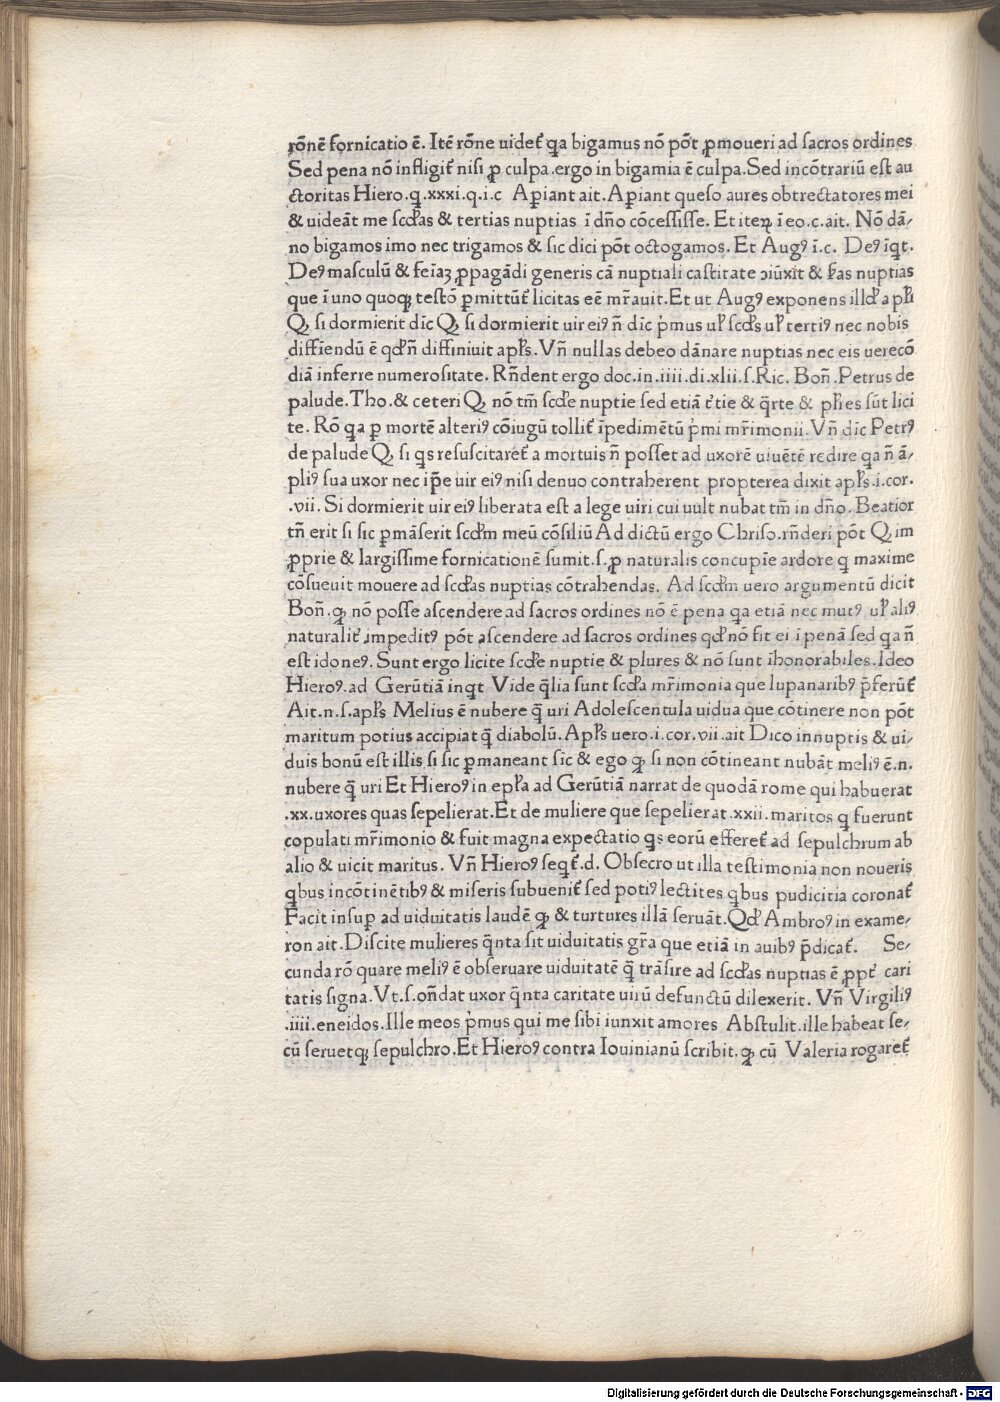 rōnē fornicatio ē. Itē rōne uidet᷑ qa bigamus nō pōt ꝓmoueri ad sacros ordines
Sed pena nō infligit᷑ nisi ꝓ culpa.ergo in bigamia ē culpa.Sed incōtrariū est au
ctoritas Hiero.q.xxxi.q.i.c Aꝑiant ait.Aꝑiant queso aures obtrectatores mei
& uideāt me scďas & tertias nuptias ī dn̄o cōcessisse. Et iteꝝ ī eo.c.ait. Nō dā⸗
no bigamos imo nec trigamos & sic dici pōt octogamos. Et Augꝰ ī.c. Deꝰ īqt.
Deꝰ masculū & feīaꝫ ꝓpagādi generis cā nuptiali castitate ↄiūxit & ẜas nuptias
que ī uno quoqꝫ testō ꝑmittūt᷑ licitas eē mr̄auit.Et ut Augꝰ exponens illď apľi
Qꝫ si dormierit dīc Qꝫ si dormierit uir eiꝰ n̄ dīc ṗmus uľ scďs uľ tertiꝰ nec nobis
diffīendū ē qďn̄ diffiniuit apľs.Vn̄ nullas debeo dānare nuptias nec eis uerecō
diā inferre numerositate. Rn̄dent ergo doc.in.iiii.di.xlii.s.Ric. Bon̄.Petrus de
palude.Tho.& ceteri Qꝫ nō tm̄ scďe nuptie sed etiā t᷑tie & q̄rte & pľes sūt lici
te. Rō qa ꝑ mortē alteriꝰ cōiugū tollit᷑ īpedimētū ṗmi mr̄imonii.Vn̄ dīc Petrꝰ
de palude Qꝫ si qs resuscitaret᷑ a mortuis n̄ posset ad uxorē uiuētē redire qa n̄ ā⸗
pliꝰ sua uxor nec ip̄e uir eiꝰ nisi denuo contraherent propterea dixit apľs.i.cor.
.vii. Si dormierit uir eiꝰ liberata est a lege uiri cui uult nubat tm̄ in dn̄o. Beatior
tn̄ erit si sic ꝑmāserit scďm meū cōsiliū Ad dictū ergo Chriso.rn̄deri pōt Qꝫ im
ꝓprie & largissime fornicationē sumit.s.ꝓ naturalis concupīe ardore q maxime
cōsueuit mouere ad scďas nuptias cōtrahendas. Ad scďm uero argumentū dicit
Bon̄.ꝙ nō posse ascendere ad sacros ordines nō ē pena qa etiā nec mutꝰ uľ aliꝰ
naturalit᷑ īmpeditꝰ pōt ascendere ad sacros ordines qď nō fit ei ī penā sed qa n̄
est idoneꝰ. Sunt ergo licite scďe nuptie & plures & nō sunt īhonorabiles.Ideo
Hieroꝰ.ad Gerūtiā inqt Vide q̄lia sunt scďa mr̄imonia que lupanaribꝰ p̄ferūt᷑
Ait.n.s.apľs Melius ē nubere q̄ uri Adolescentula uidua que cōtinere non pōt
maritum potius accipiat q̄ diabolū.Apľs uero.i.cor.vii.ait Dico innuptis & ui⸗
duis bonū est illis si sic ꝑmaneant sic & ego ꝙ si non cōtineant nubāt meliꝰ ē.n.
nubere q̄ uri Et Hieroꝰ in epľa ad Gerūtiā narrat de quodā rome qui habuerat
.xx.uxores quas sepelierat.Et de muliere que sepelierat.xxii.maritos q fuerunt
copulati mr̄imonio & fuit magna expectatio qs eorū efferet᷑ ad sepulchrum ab
alio & uicit maritus. Vn̄ Hieroꝰ seqt᷑.d. Obsecro ut illa testimonia non noueris
qbus incōtinētibꝰ & miseris subuenit᷑ sed potiꝰ lectites qbus pudicitia coronat᷑
Facit insuꝑ ad uiduitatis laudē ꝙ & turtures illā seruāt.Qď Ambroꝰ in exame⸗
ron ait.Discite mulieres q̄nta sit uiduitatis gr̄a que etiā in auibꝰ p̄dicat᷑. Se⸗
cunda rō quare meliꝰ ē obseruare uiduitatē q̄ trāsire ad scďas nuptias ē ꝓpt᷑ cari
tatis signa.Vt.s.on̄dat uxor q̄nta caritate uirū defunctū dilexerit. Vn̄ Virgiliꝰ
.iiii.eneidos.Ille meos ṗmus qui me sibi iunxit amores Abstulit.ille habeat se⸗
cū seruetqꝫ sepulchro.Et Hieroꝰ contra Iouinianū scribit.ꝙ cū Valeria rogaret᷑
Digitalisierung gefördert durch die Deutsche Forschungsgemeinschaft - DFG